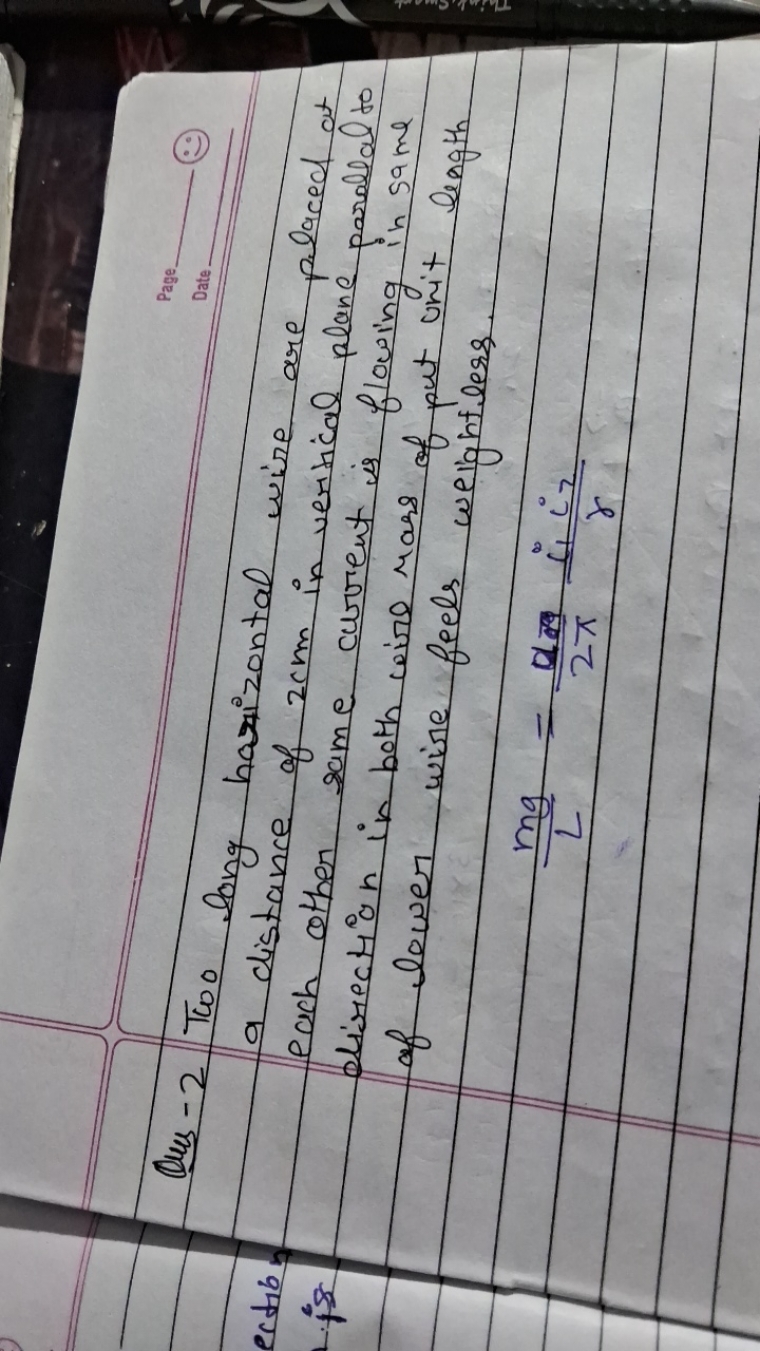 Think Smart
Page
Date
Ques - 2 Two long horizontal wire are placed at
a distance of 2cm in vertical plane parallal to
each other same current is flowing in same
direction in both wire mass of put unit length
of lower wire feels weightless.
mg/L = /2π i1 i2/r
ection
is